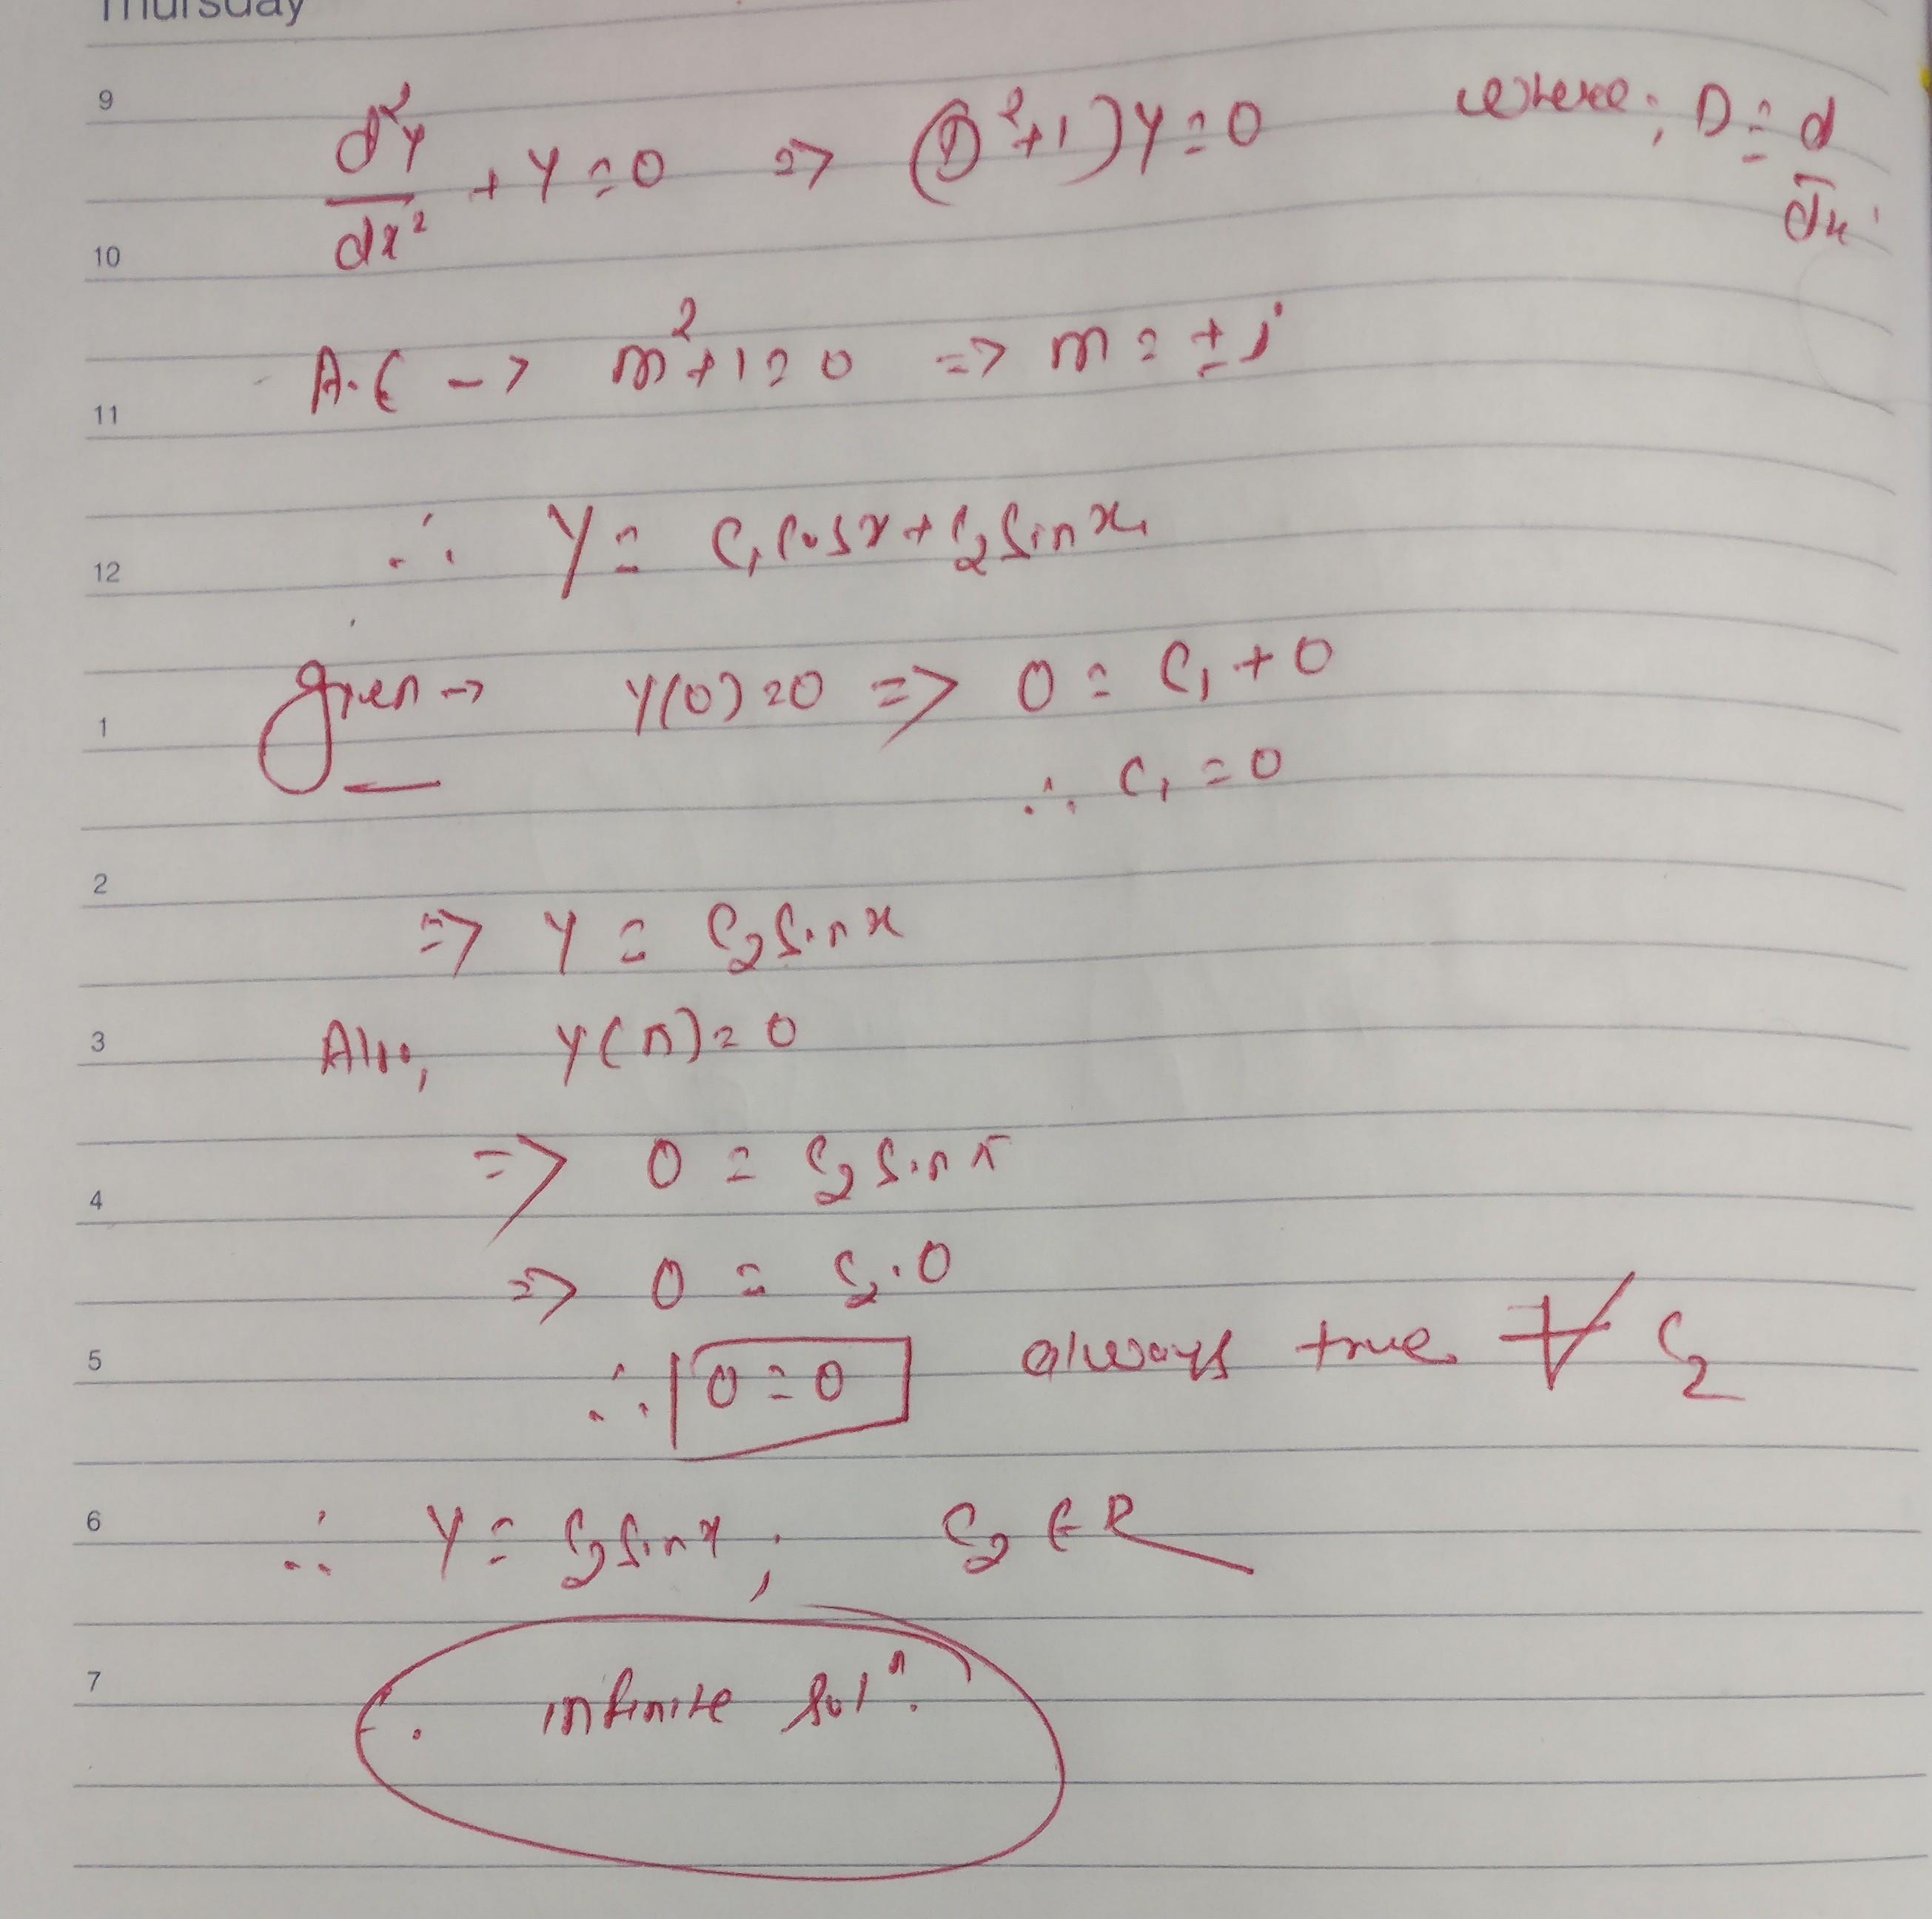 Thursday
9
d²y/dx² + y = 0 => (D²+1)y = 0 where; D = d/dx
10
A.E -> m²+1 = 0 => m = ± i
11
∴ y = C₁cosx + C₂sinx
12
given -> y(0) = 0 => 0 = C₁ + 0
1
∴ C₁ = 0
2
=> y = C₂sinx
3
Also, y(π) = 0
=> 0 = C₂ sin π
4
=> 0 = C₂.0
5
∴ 0 = 0 always true ∀ C₂
6
∴ y = C₂sinx, C₂ ∈ R
7
infinite solⁿ.